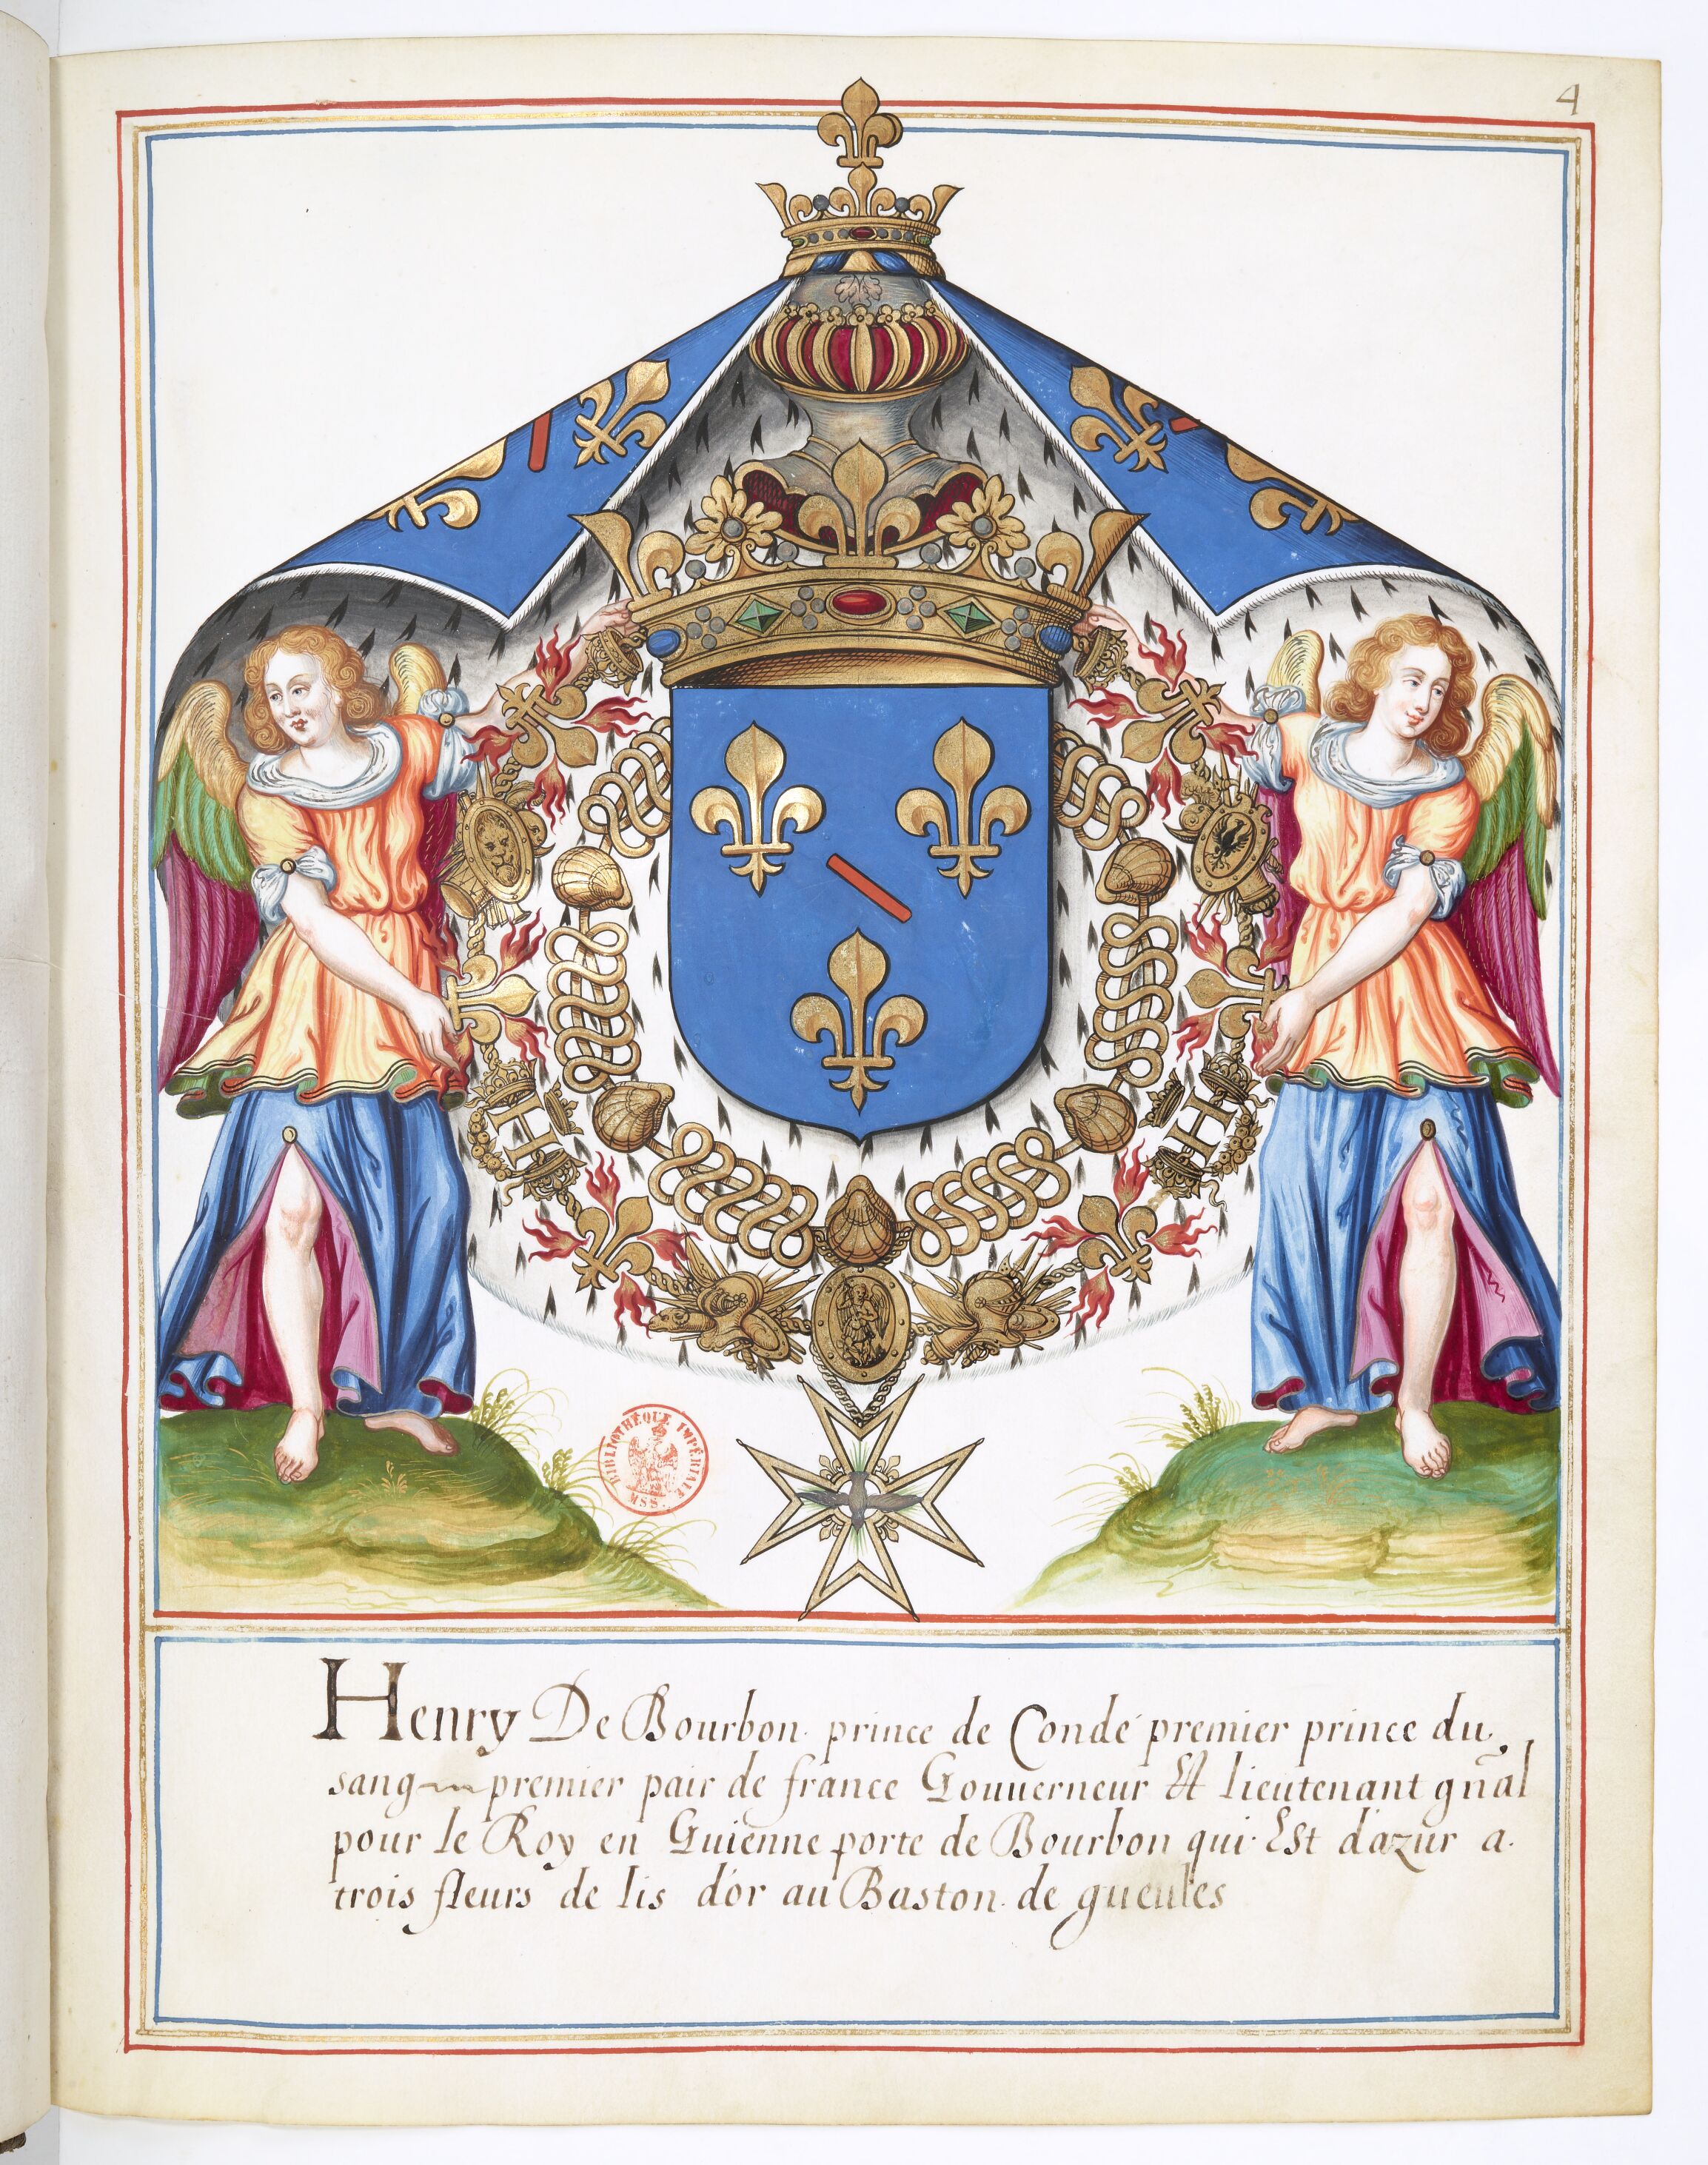 4
H
H
BIBLIOTHÈQUE IMPÉRIALE
MSS.
Henry De Bourbon prince de Condé premier prince du
sang premier pair de france Gouuerneur Et lieutenant gñal
pour le Roy en Guienne porte de Bourbon qui Est d'azur a
trois fleurs de lis d'or au Baston de gueules